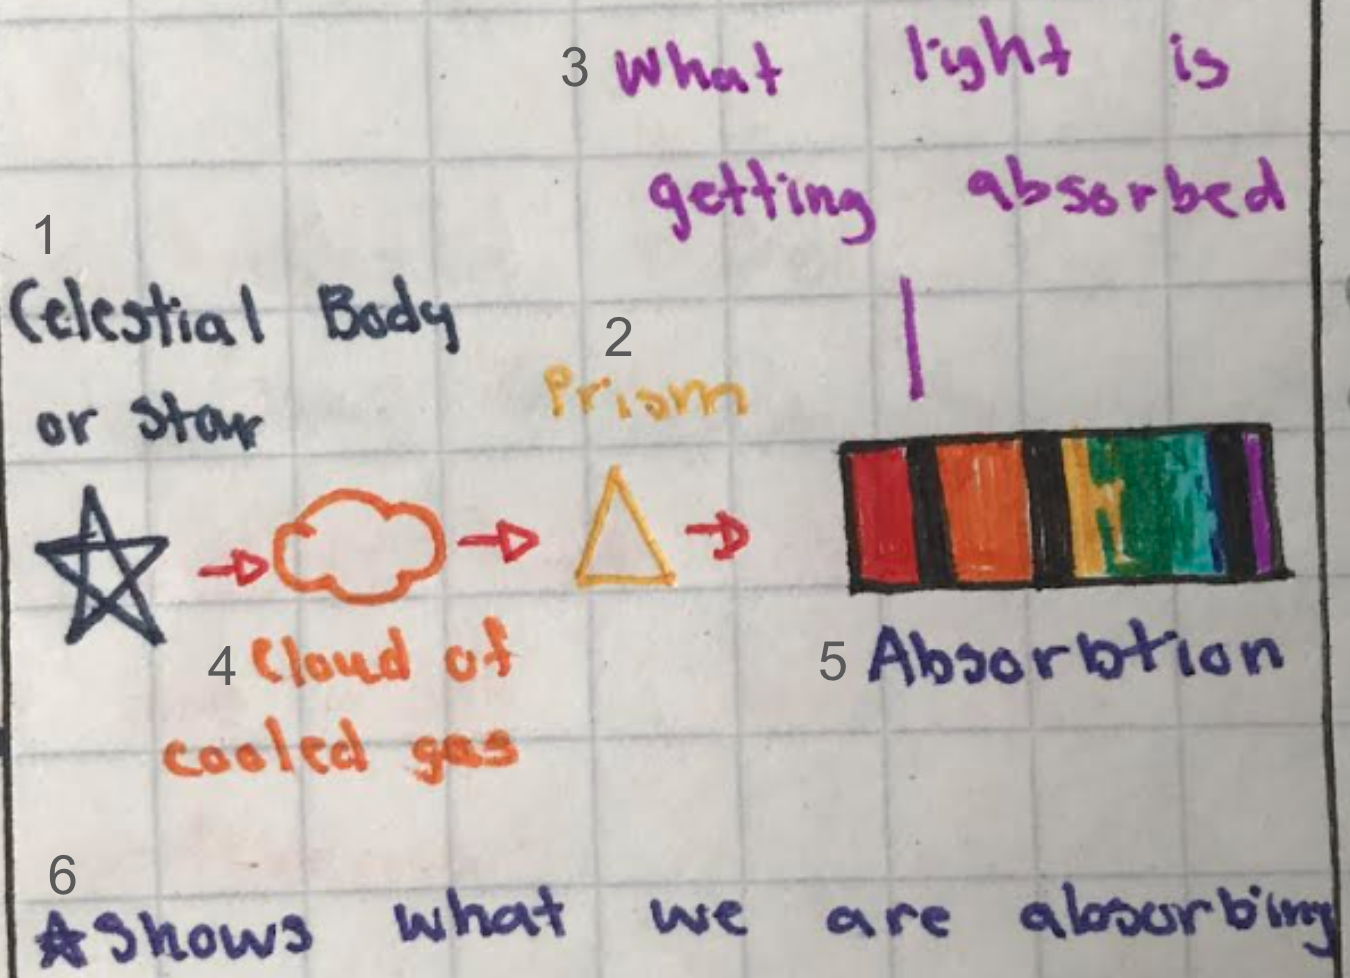 3 What light is
getting absorbed
1
Celestial Body
or star
2
Prism
4 Cloud of
cooled gas
5 Absorbtion
6
☆Shows what we are absorbing